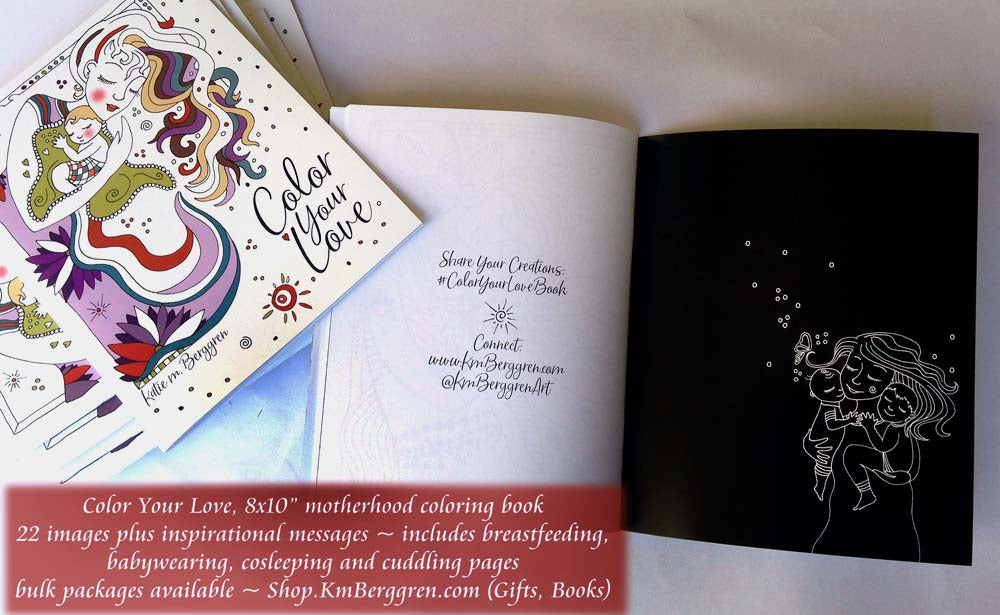 Color
Your
Love
Katie m. Berggren
Share Your Creations:
#ColorYourLoveBook
Connect:
www.KmBerggren.com
@KmBerggrenArt
Color Your Love, 8x10” motherhood coloring book
22 images plus inspirational messages ~ includes breastfeeding,
babywearing, cosleeping and cuddling pages
bulk packages available ~ Shop.KmBerggren.com (Gifts, Books)